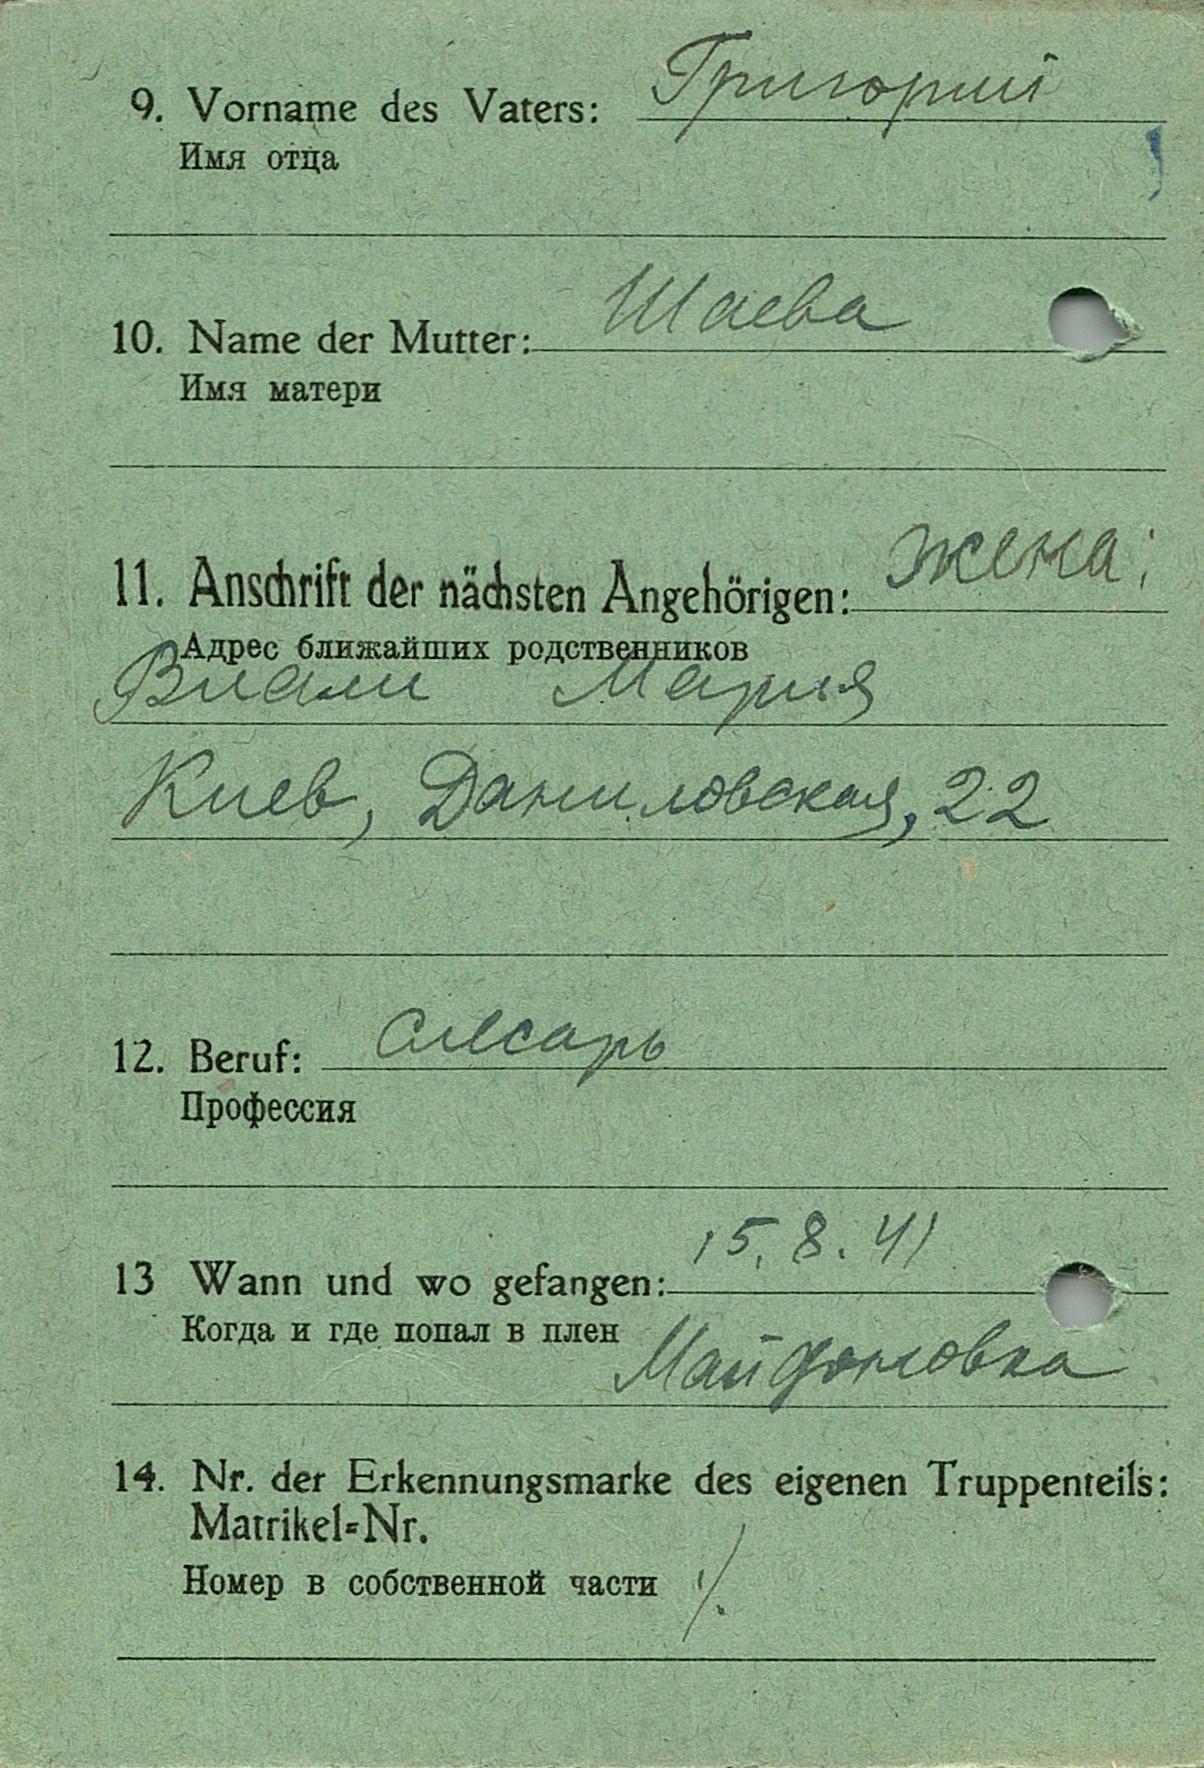 9. Vorname des Vaters: Григорий
Имя отца
10. Name der Mutter: Шаева
Имя матери
11. Anschrift der nächsten Angehörigen: жена:
Адрес ближайших родственников
Виали Мария
Киев, Даниловская, 22
12. Beruf: слесарь
Профессия
13 Wann und wo gefangen: 15.8.41
Когда и где попал в плен
Майдановка
14. Nr. der Erkennungsmarke des eigenen Truppenteils:
Matrikel=Nr.
Номер в собственной части ./.